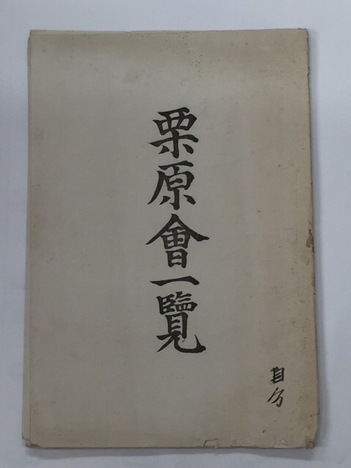 栗原會一覽
自分